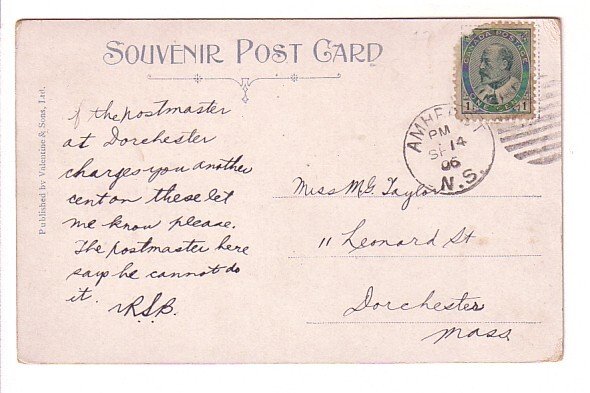 SOUVENIR POST CARD
Published by Valentine & Sons, Ltd.
If the postmaster
at Dorchester
charges you another
cent on these let
me know please.
The postmaster here
says he cannot do
it. RSB.
CANADA POSTAGE
1 1
ONE CENT
AMHERST
PM
SP 14
06
N.S.
Miss M.G. Taylor
11 Leonard St
Dorchester
Mass